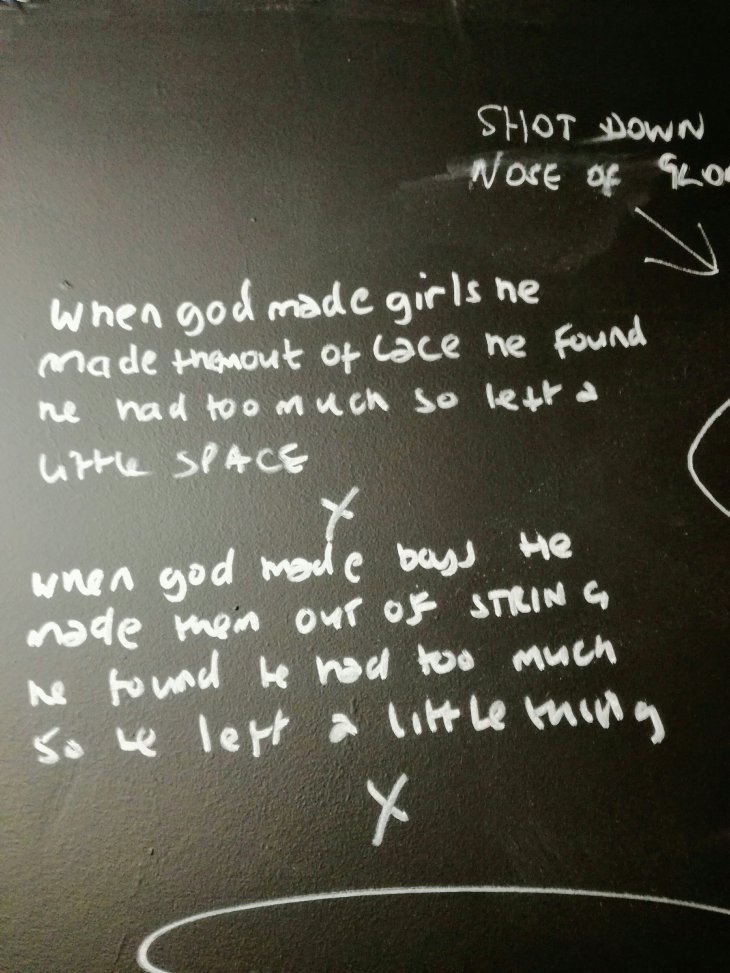 SHOT DOWN
NOSE OF
when god made girls he
made them out of lace he found
he had too much so left a
little SPACE
X
when god made boys He
made them out of STRING
he found he had too much
so he left a little thing
X